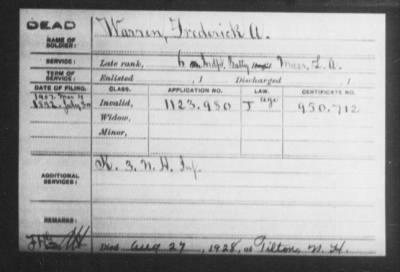 DEAD
NAME OF SOLDIER: Warren, Frederick A.
SERVICE: Late rank, Batty Mass. L. A.
TERM OF SERVICE: Enlisted , 1 Discharged , 1
DATE OF FILING. CLASS. APPLICATION NO. LAW. CERTIFICATE NO.
1907
1892. July 30 Invalid, 1123.980 J age 950.712
Widow,
Minor,
ADDITIONAL SERVICES: K. 3 N. H. Inf.
REMARKS:
Died Aug 27, 1928, at Tilton, N. H.